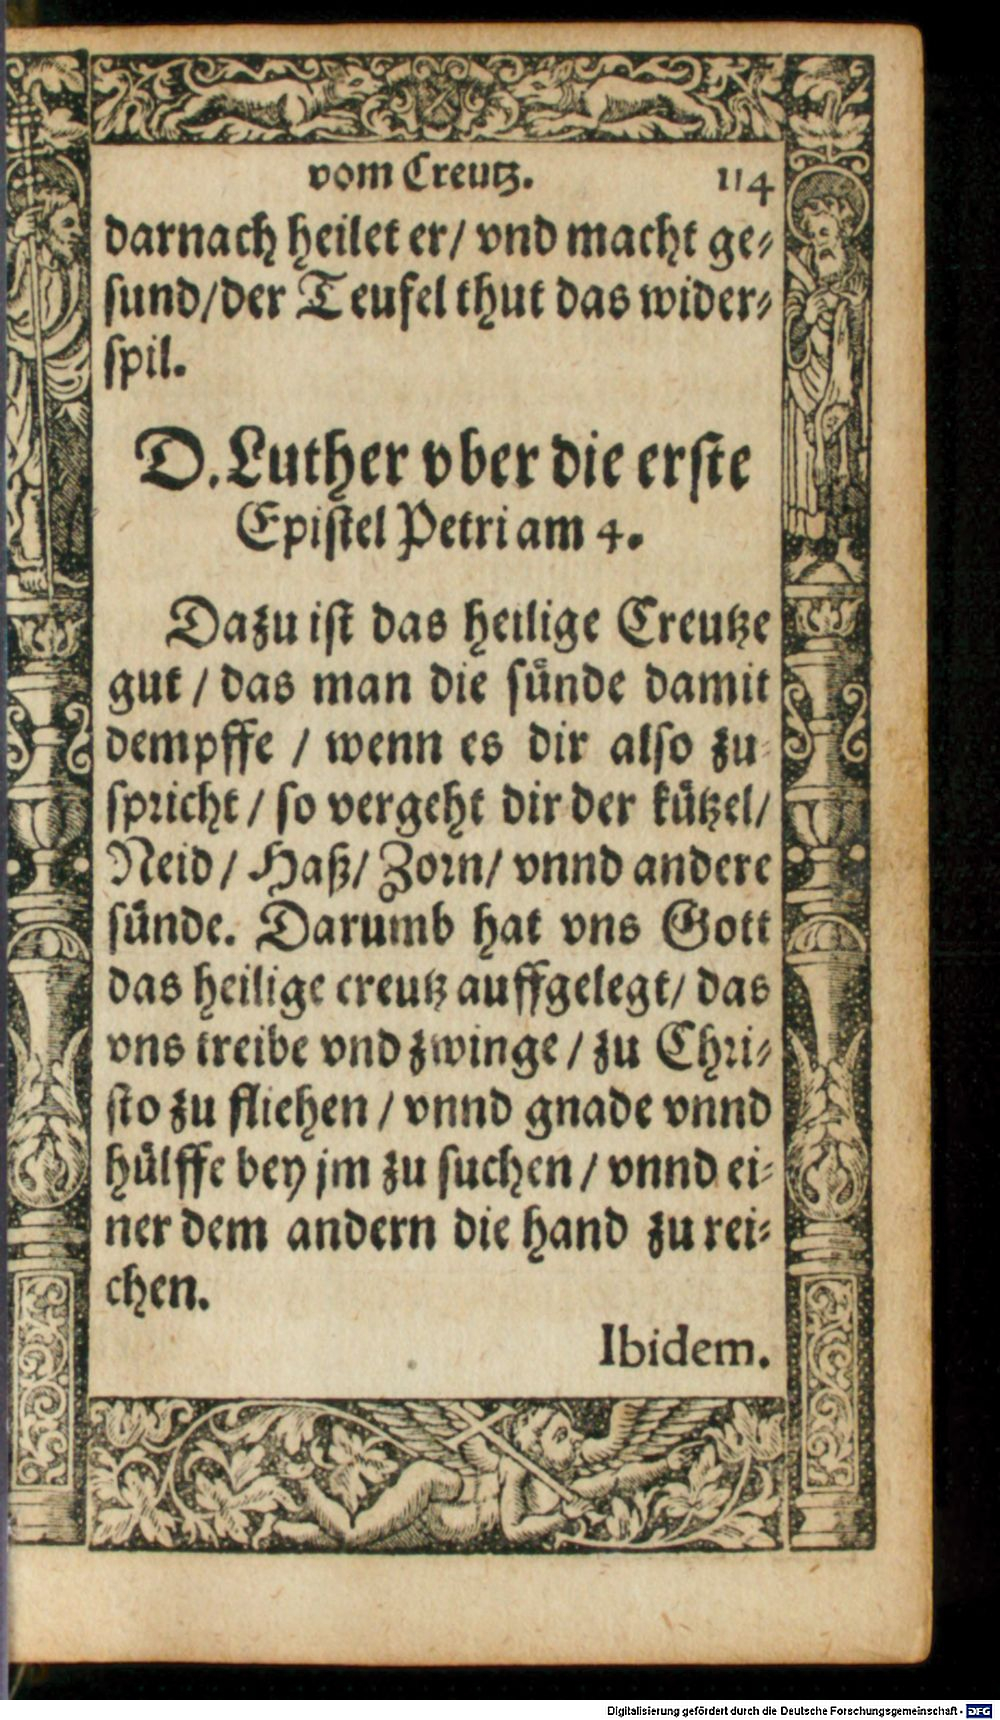 vom Creutz. 114
darnach heilet er/ vnd macht ge⸗
sund/der Teufel thut das wider⸗
spil.
D. Luther vber die erste
Epistel Petri am 4.
Dazu ist das heilige Creutze
gut / das man die sünde damit
dempffe / wenn es dir also zu⸗
spricht / so vergeht dir der kützel/
Neid / Haß/ Zorn/ vnnd andere
sünde. Darumb hat vns Gott
das heilige creutz auffgelegt/ das
vns treibe vnd zwinge / zu Chri⸗
sto zu fliehen / vnnd gnade vnnd
hülffe bey jm zu suchen / vnnd ei⸗
ner dem andern die hand zu rei⸗
chen.
Ibidem.
Digitalisierung gefördert durch die Deutsche Forschungsgemeinschaft - DFG